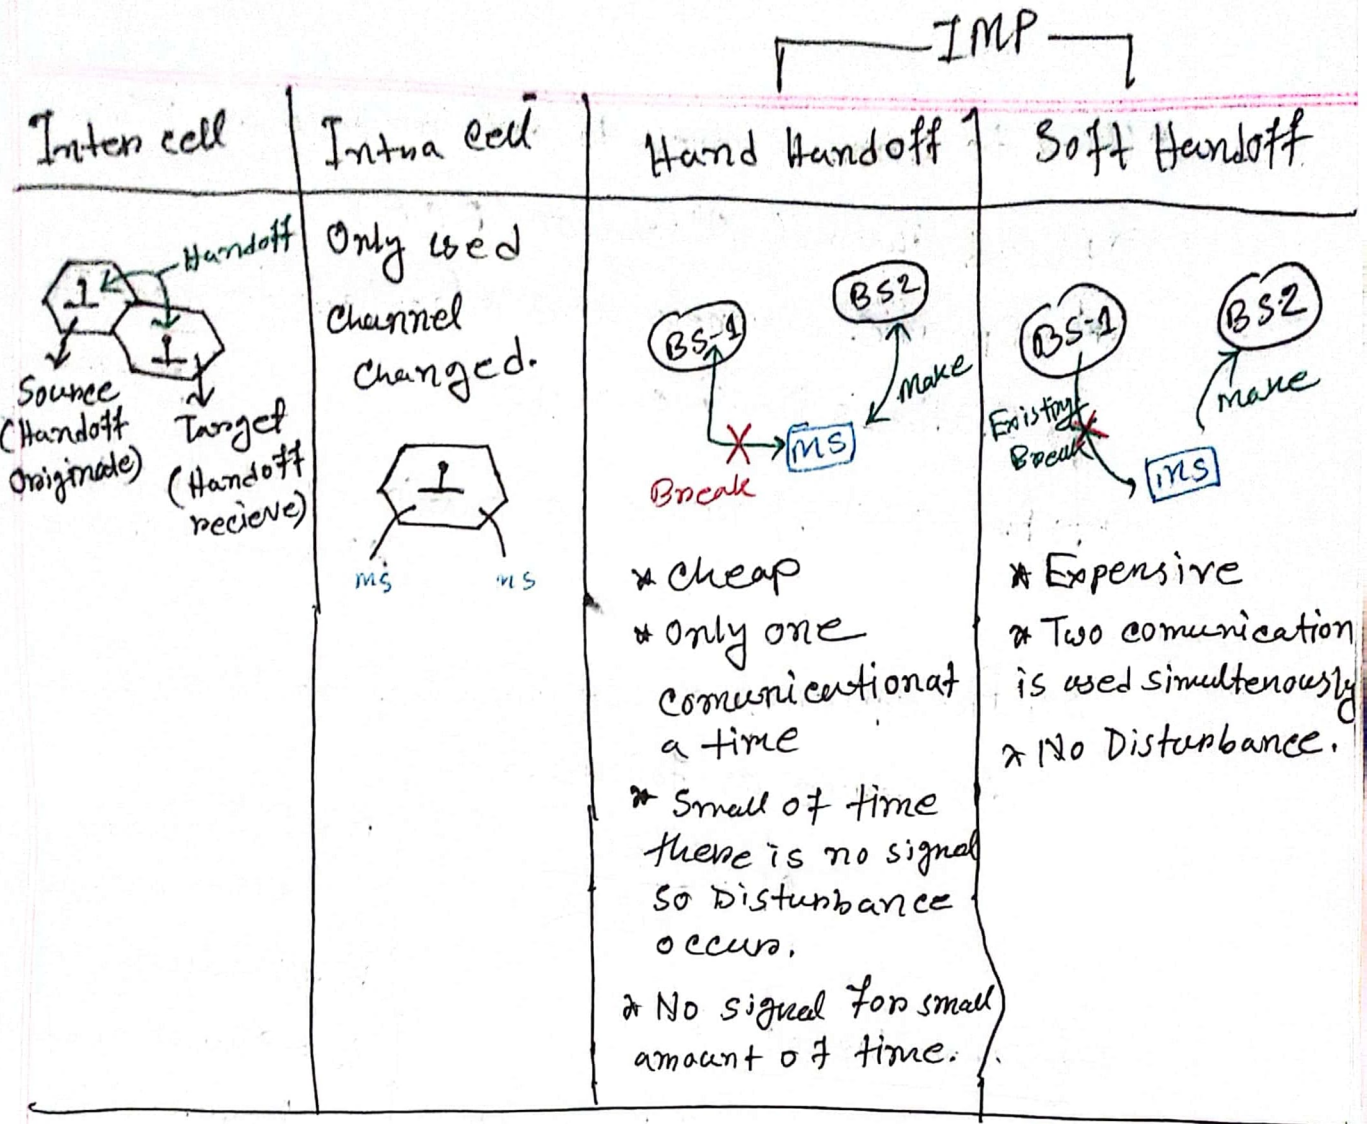 IMP
Inter cell
Intra cell
Hard Handoff
Soft Handoff
Handoff
1
1
Source
(Handoff
originate)
Target
(Handoff
recieve)
Only used
channel
changed.
1
ms
ms
BS-1
BS2
Make
MS
Break
* Cheap
* Only one
comunicationat
a time
* Small of time
there is no signal
so Disturbance
occurs.
* No signal for small
amount of time.
BS-1
BS2
Make
Existing
Break
MS
* Expensive
* Two comunication
is used simultenously
* No Disturbance.